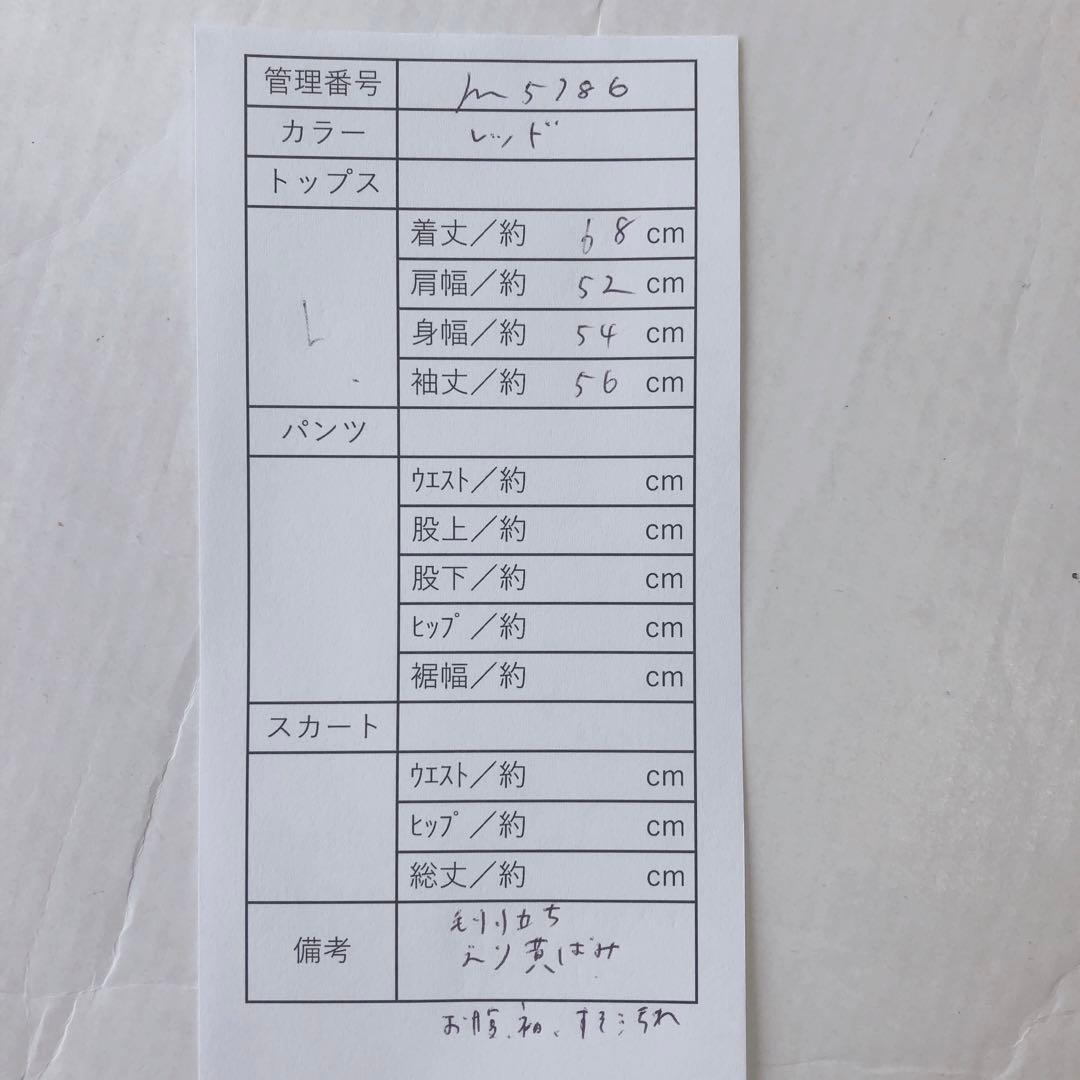 管理番号 m5786
カラー レッド
トップス
L
着丈／約 68 cm
肩幅／約 52 cm
身幅／約 54 cm
袖丈／約 56 cm
パンツ
ｳｴｽﾄ／約 cm
股上／約 cm
股下／約 cm
ﾋｯﾌﾟ／約 cm
裾幅／約 cm
スカート
ｳｴｽﾄ／約 cm
ﾋｯﾌﾟ／約 cm
総丈／約 cm
備考 毛羽立ち
えり黄ばみ
お腹、袖、すそ汚れ